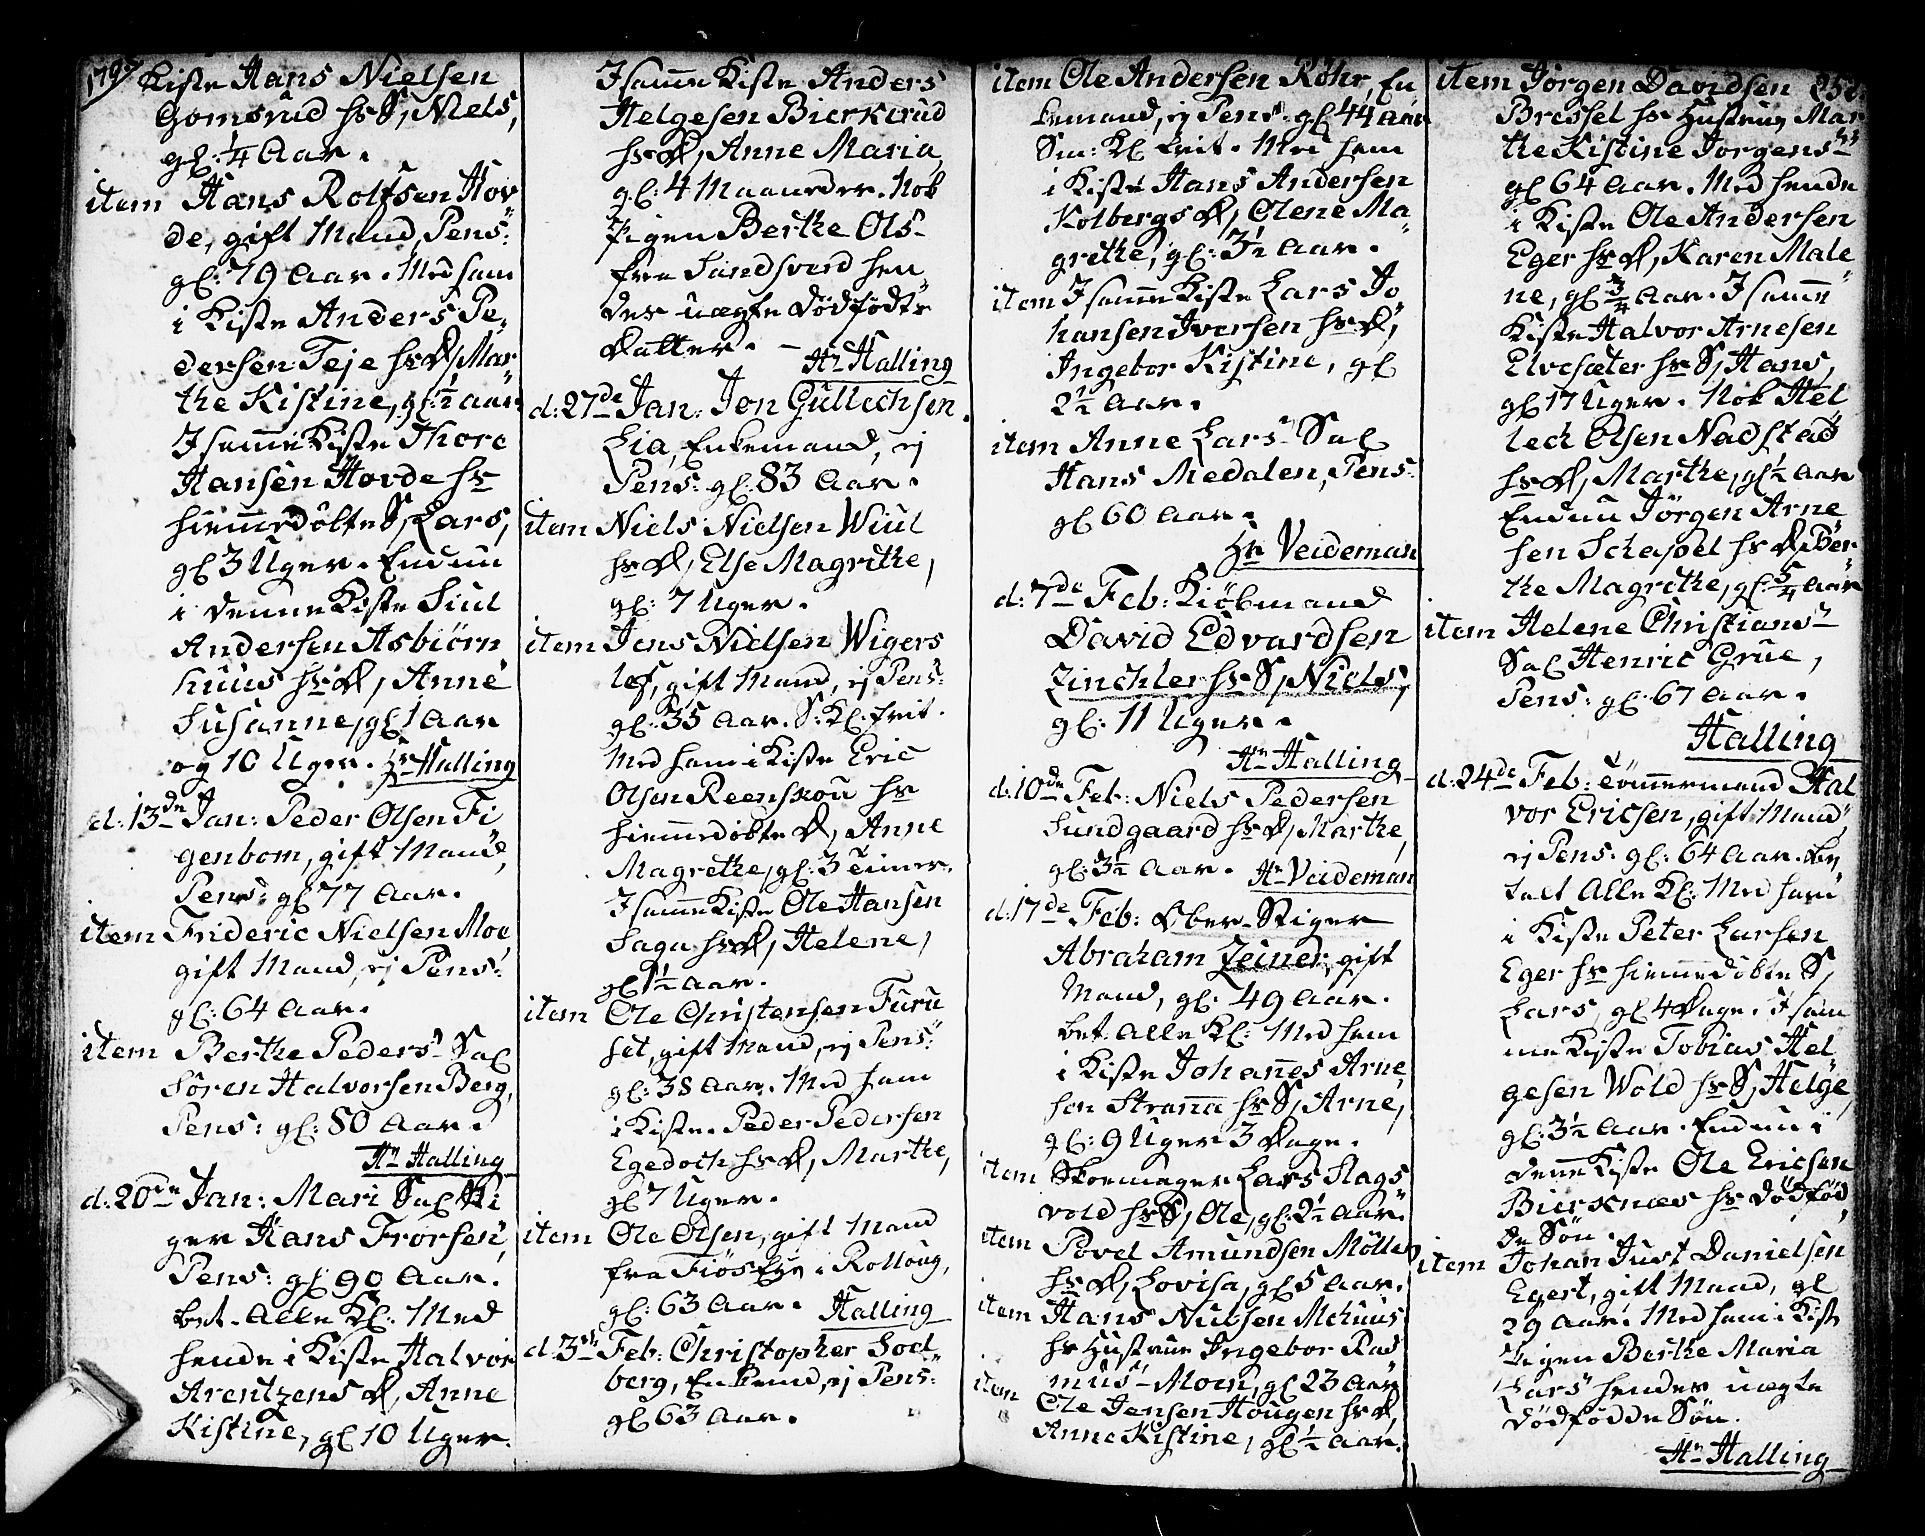 1797
Kiste Hans Nielsen
Gomsrud hs S, Niels,
gl: 1/4 Aar.
item Hans Rolfsen Hov
de, gift Mand, Pens:
gl: 79 Aar. Med ham
i Kiste Anders Pe„
dersen Teje hs D, Mar„
the Kistine, gl: 1/2 aar
I samme Kiste Thore
Hansen Hovde hs
hiemmedøbte S, Lars,
gl 3 Uger. Endnu
i denne Kiste Siul
Andersen Asbiørn
huus hs D, Anne
Susanne, gl 1 Aar
og 10 Uger. Hr Halling
d: 13de Jan: Peder Olsen Fi
genbom, gift Mand,
Pens: gl 77 Aar.
item Frideric Nielsen Moe,
gift Mand, ej Pens:
gl: 64 Aar.
item Berthe Peders- Sal
Sören Halvorsen Berg,
Pens: gl: 80 Aar.
Hr Halling
d: 20de Jan: Mari Sal Sti
ger Hans Frorsen,
Pens: gl 90 Aar.
bet. Alle Kl. Med
hende i Kiste Halvor
Arentzens D, Anne
Kistine, gl 10 Uger.
I samme Kiste Anders
Helgesen Bierkerud
hs D, Anne Maria,
gl: 4 Maaneder. Nok
Pigen Berthe Ols-
fra Sandsverd hen
des uægte dødfødte
Datter. -
Hr Halling
d: 27de Jan: Jon Gullechsen
Lia, Enkemand, ej
Pens: gl: 83 Aar.
item Niels Nielsen Wiul
hs D, Else Magrethe,
gl: 7 Uger.
item Jens Nielsen Wigers
løf, gift Mand, ej Pens:
gl: 35 Aar. S: Kl: frit.
Med ham i Kiste Eric
Olsen Reenskou hs
hiemmedøbte D, Anne
Magrethe, gl: 3 Timer.
I samme Kiste Ole Hansen
Saga hs D, Helene,
gl 1 1/2 Aar.
item Ole Christensen Furu
set, gift Mand, ej Pens:
gl: 38 Aar. Med ham
i Kiste. Peder Pedersen
Egedoch hs D, Marthe,
gl 7 Uger.
item Ole Olsen, gift Mand
fra Fiøs i Rolloug,
gl: 63 Aar. Halling
d: 3die Feb: Christopher Sod
berg, Enkemd, ej Pens:
gl 63 Aar.
item Ole Andersen Röhr, En
kemand, ej Pens: gl 44 Aar
Sm: Kl frit. Med ham
i Kiste Hans Andersen
Kolbergs D, Olene Ma
grethe, gl: 3 1/2 Aar.
item I samme Kiste Lars Jo
hansen Iversen hs D,
Ingebor Kistine, gl
2 1/2 Aar.
item Anne Lars- Sal
Hans Medalen, Pens:
gl 60 Aar.
Hr Veideman
d: 7de Feb: Kiöbmand
David Edvardsen
Zinchler hs S, Niels,
gl: 11 Uger.
Hr Halling
d: 10de Feb: Niels Pedersen
Sundgaard hs D, Marthe,
gl: 3 1/2 Aar. Hr Veideman
d: 17de Feb: Ober-Stiger
Abraham Zeiner, gift
Mand, gl: 49 Aar.
bet. Alle Kl: Med ham
i Kiste Johannes Arne
sen Stranna hs S, Arne,
gl: 9 Uger 3 Dage.
item Skoemager Lars Slags
vold hs S, Ole, gl: 2 1/2 Aar.
item Povel Amundsen Møller
hs D, Lovisa, gl 5 Aar.
item Hans Nielsen Mehuus
hs Hustrue Ingebor Ras
mus- Moen, gl 23 Aar
item Ole Jensen Hougen hs D,
Anne Kistine, gl 1/2 Aar.
252
item Jörgen Davidsen
Bressel hs Hustrue Mar
the Kistine Jorgensdr
gl 64 Aar. Med hende
i Kiste Ole Andersen
Eger hs D, Karen Male
ne, gl 3/4 Aar. I samme
Kiste Halvor Arnesen
Elvesæter hs S, Hans,
gl 17 Uger. Nok Hel
lech Olsen Nadstad
hs D, Marthe, gl 1/2 Aar
Endnu Jörgen Arne
sen Schapel hs D, Ber
the Magrethe, gl: 5/4 Aar
item Helene Christians-
Sal Henric Grue,
Pens: gl: 67 Aar.
Halling
d: 24de Feb: Tömmermand Hal
vor Ericsen, gift Mand,
ej Pens. gl: 64 Aar. be
talt Alle Kl: Med ham
i Kiste Peter Larsen
Eger hs hiemmedøbte S,
Lars, gl 4 Dage. I sam
me Kiste Tobias Hel
gesen Wold hs S, Helge,
gl: 3 1/2 Aar. Endnu i
denne Kiste Ole Ericsen
Bierknæs hs dødfød
de Søn.
item Johan Just Danielsen
Egert, gift Mand, gl
29 Aar. Med ham i Kiste
Pigen Berthe Maria
Lars- hendes uægte
dødfødde Søn.
Hr Halling